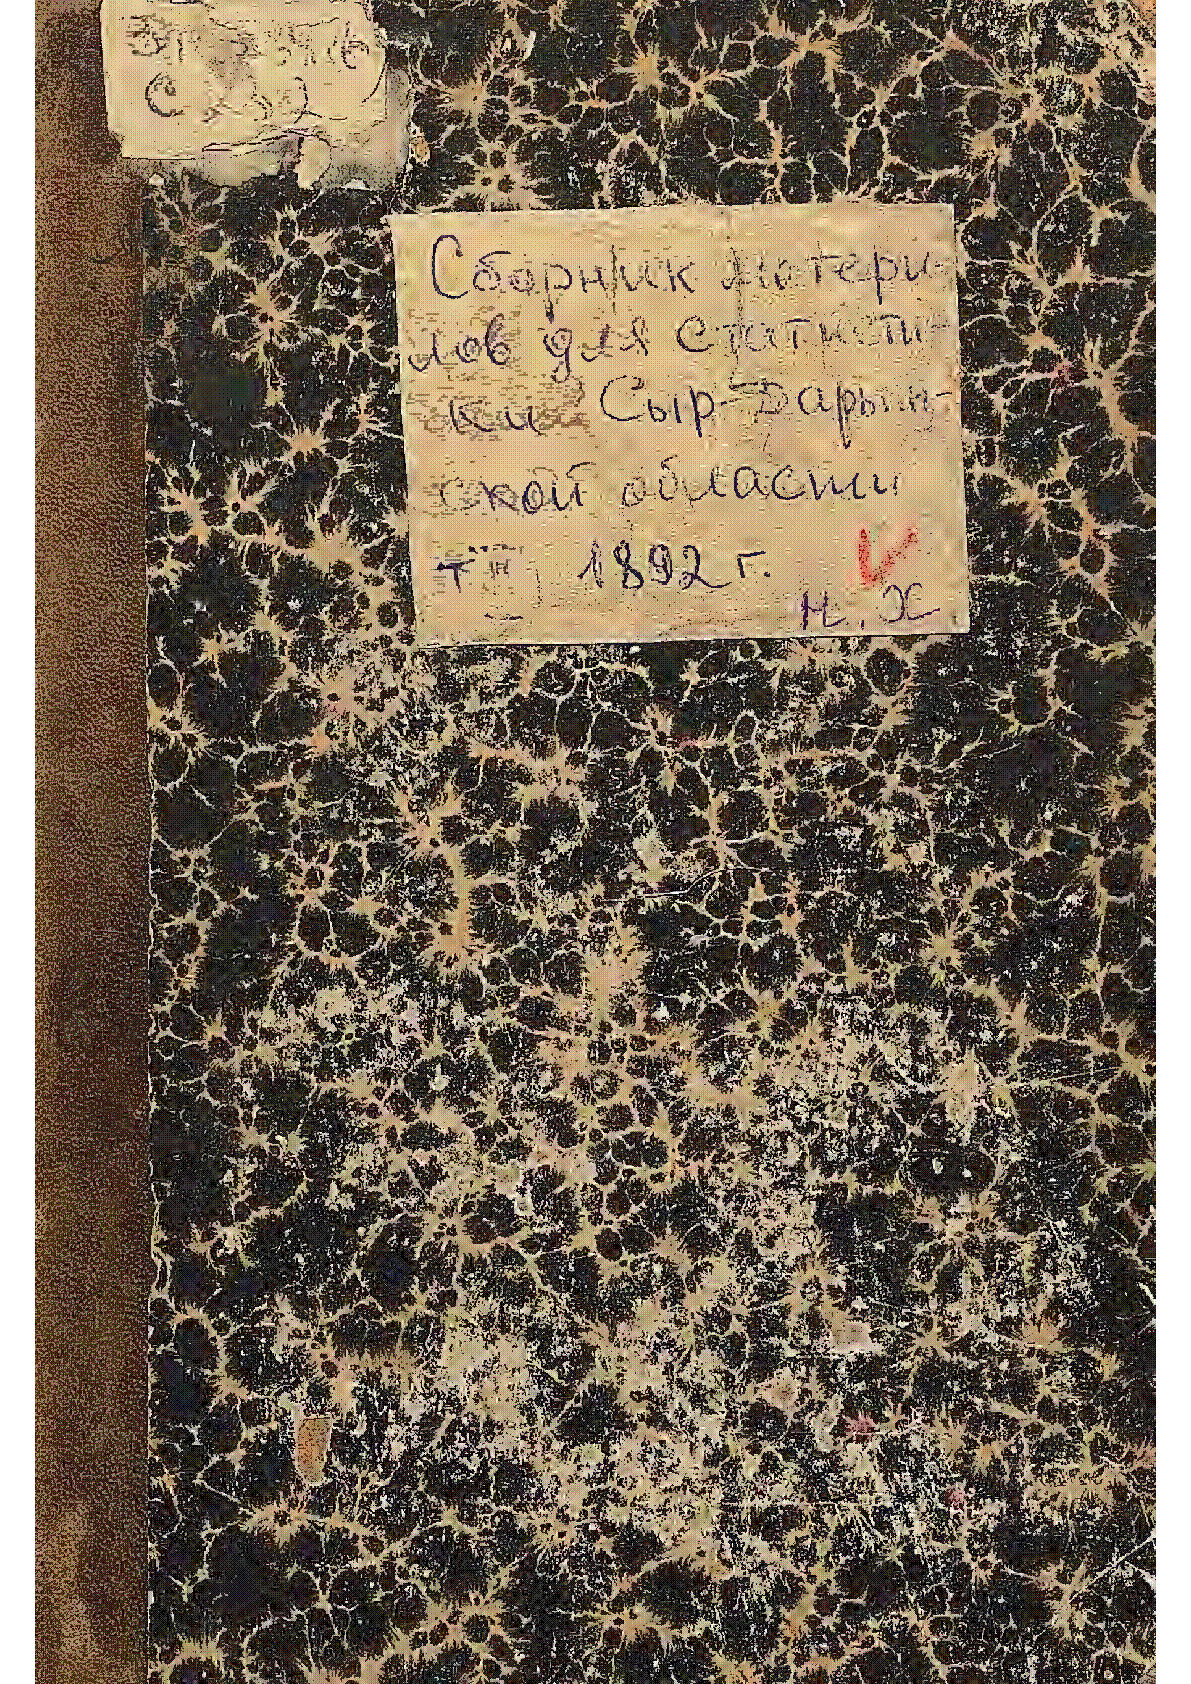 Сборник матери-
лов для статисти-
ки Сыр-Дарьин-
ской области
т 1892 г.
Н. Х